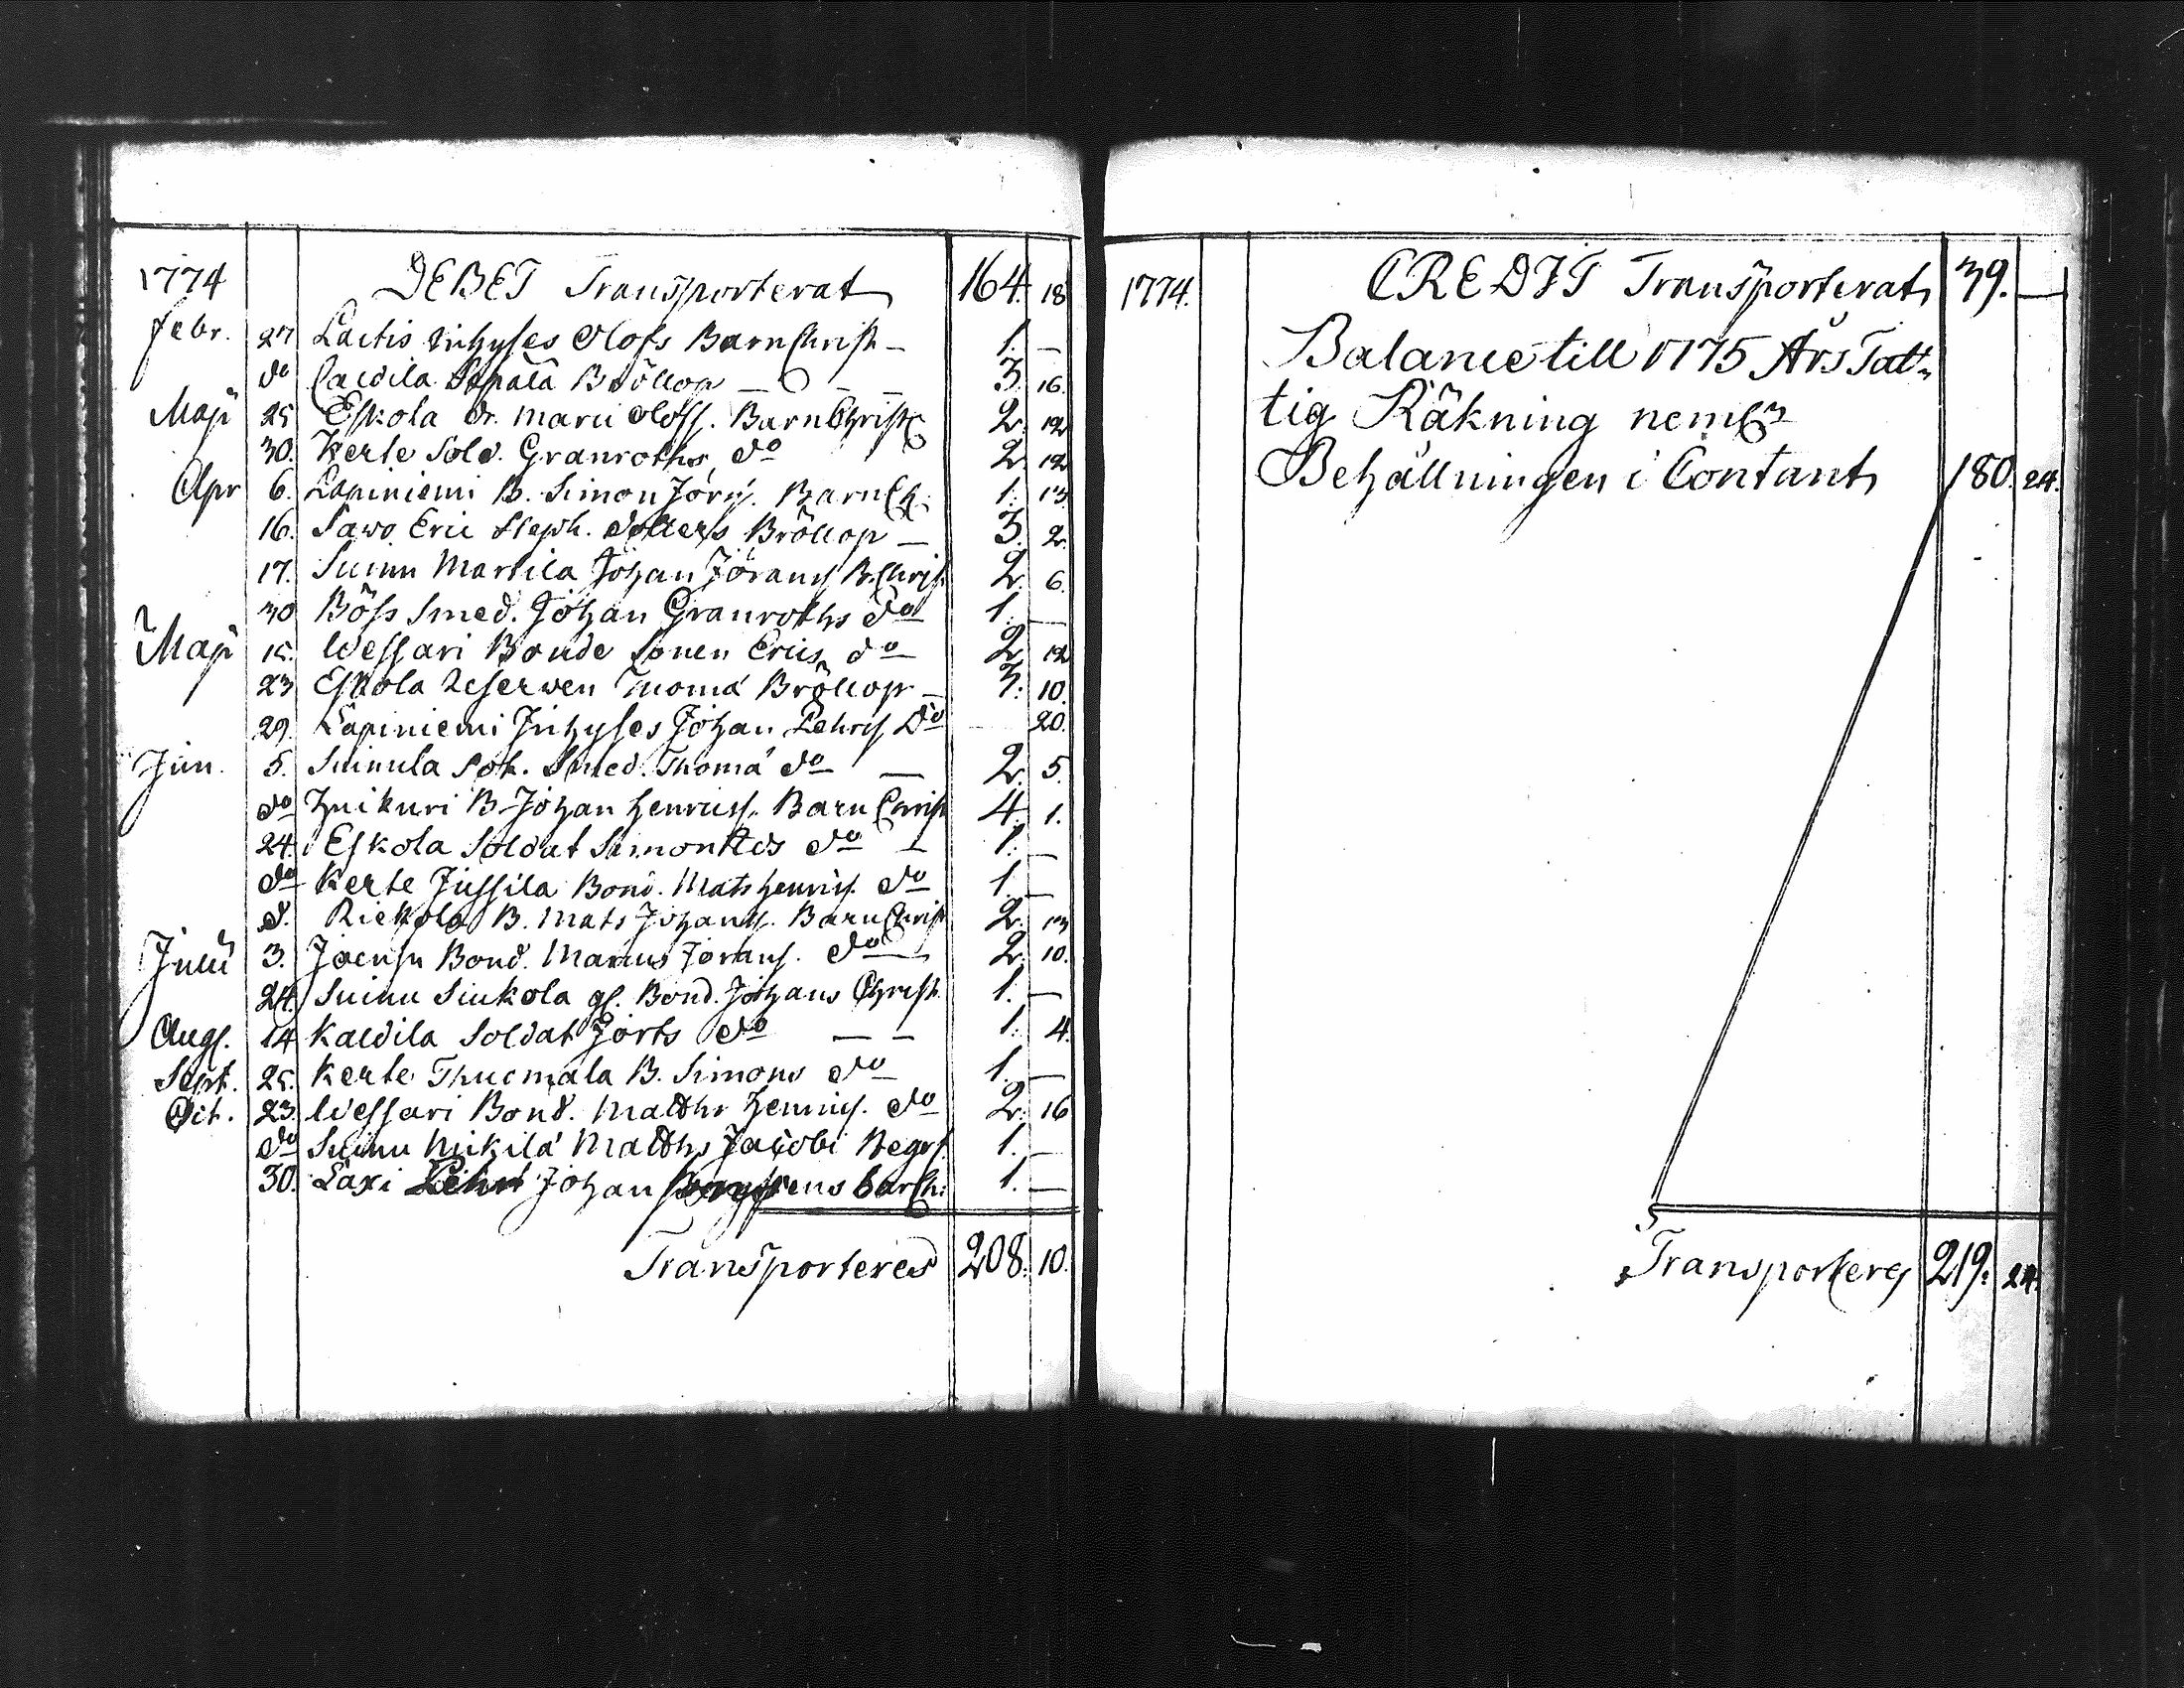 1774 DEBET Transporterat 164. 18
Febr. 27 Laitis Inhyses Olofs Barn Christ — 1. —
do Caldila Sepälä Bröllop — — — 3. 16.
Maji 25 Eskola Dr. Olofss. Barn Christ 2. 12
30. Kerte Sold. Granroths do 2. 12
Apr 6. Lapiniemi B. Simon Jörs. Barn Ch. 1. 13.
16. Savo Eric Steph. Bröllop — 3. 2.
17. Suinu Martila Johan Jörans B. Christ 2. 6.
30 Böss Smed. Johan Granroths do 1. —
Maji 15. Wessari Bonde Sonen Erics do 2. 12
23 Eskola Reserven Thomæ Bröllop — 3. 10.
29. Lapiniemi Inhyses Johan do 20.
Jun. 5. Suinula Sok. Smed. Thomæ do — 2. 5.
do Huikuri B. Johan Henricss. Barn Christ 4. 1.
24. Eskola Soldat do — 1. —
do Kerte Jussila Bond. Mats Henrics. do 1. —
d. Riekola B. Mats Johans. Barn Christ 2. 13
Julii 3. Joensu Bond. Marcus Jörans. do 2. 10.
24. Suinu Siukola gl. Bond. Johans Christ. 1. —
Augs. 14 Kaldila Soldat Jorts do — — 1. 4.
Sept. 25. Kerte Thucmala B. Simons do 1. —
Oct. 23. Wessari Bond. Matths Henrics. do 2. 16
do Suinu Mikilä Matths Jacobi Begrf. 1. —
30. Laxi Johan 1. —
Transporteres 208. 10.
1774. CREDIT Transporterat 39. —
Balance till 1775 Års Tall-
tig Räkning neml.
Behållningen i Contant 180. 24.
Transporteres 219. 24.